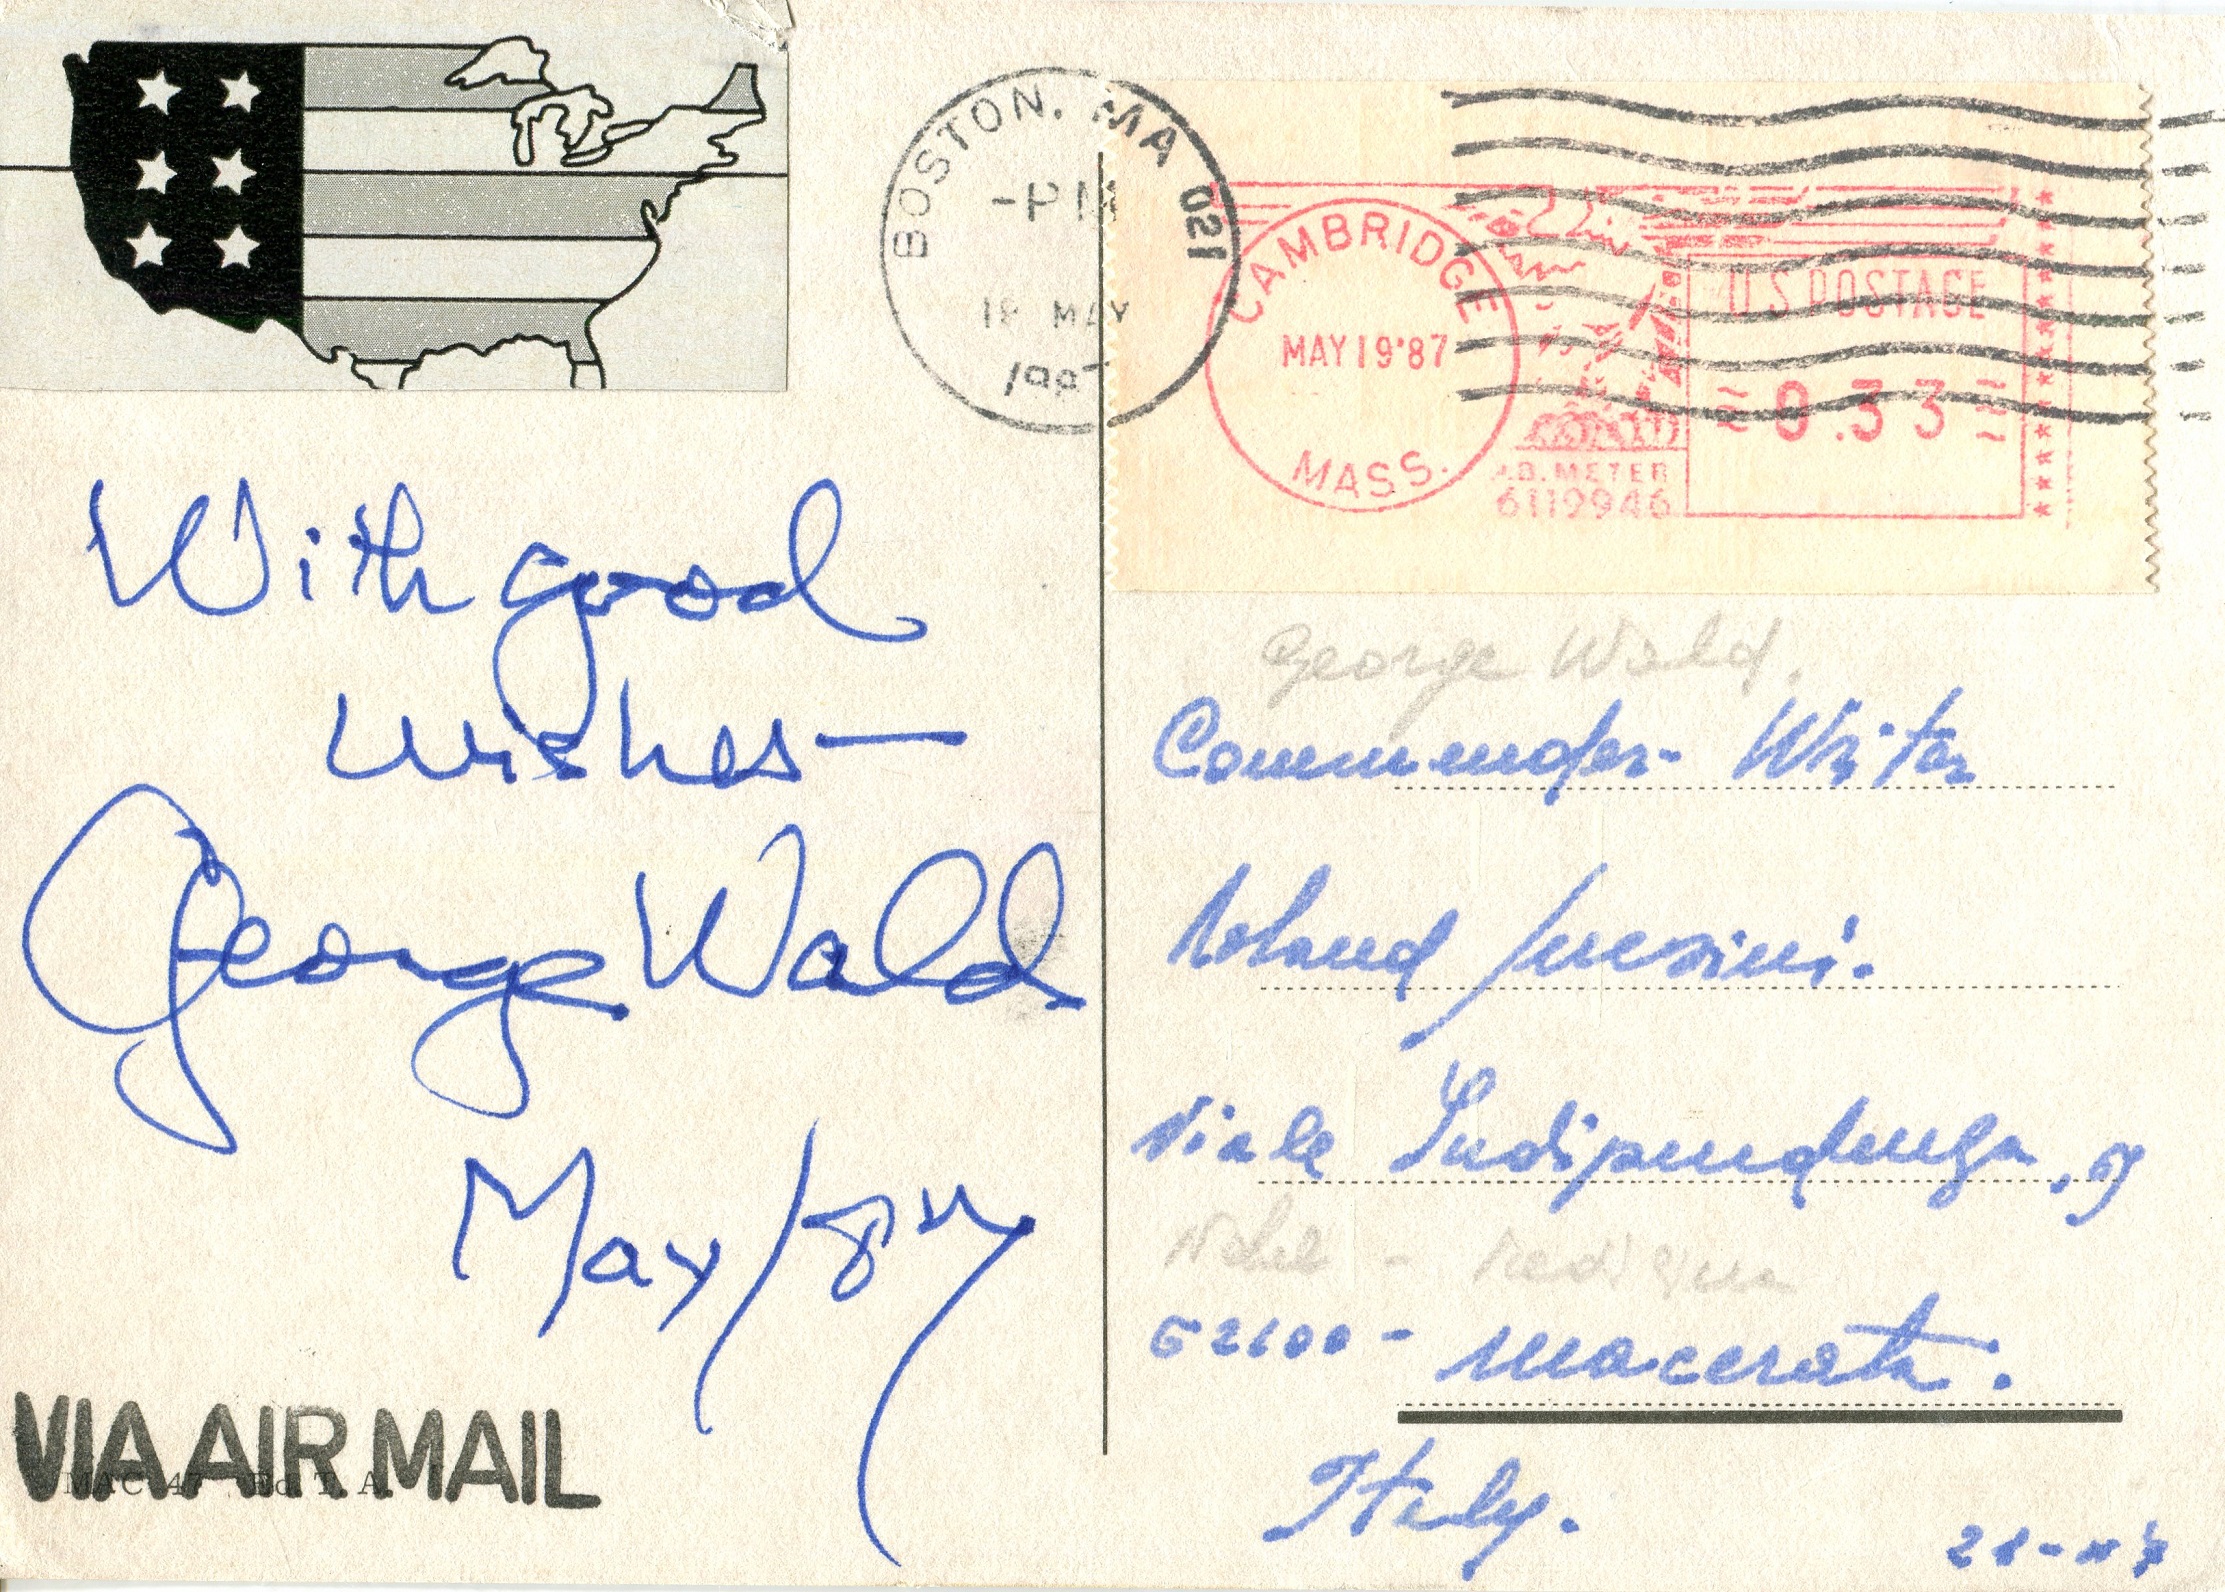 BOSTON, MA 021
-PM
18 MAY
CAMBRIDGE
MAY 19 '87
MASS.
U.S. POSTAGE
0.33
P.B. METER
6119946
With good
wishes—
George Wald
May/87
VIA AIR MAIL
MAC 47 Ed. T. A.
George Wald.
Commender Writer
Roland
Viale Indipendenza,
Nobel - Medicina
62100 - Macerata.
Italy.